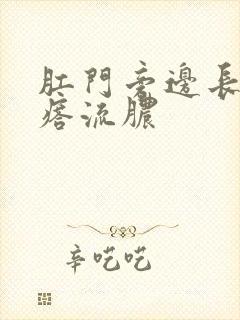 肛門旁邊長
痞流膿
辛吃吃